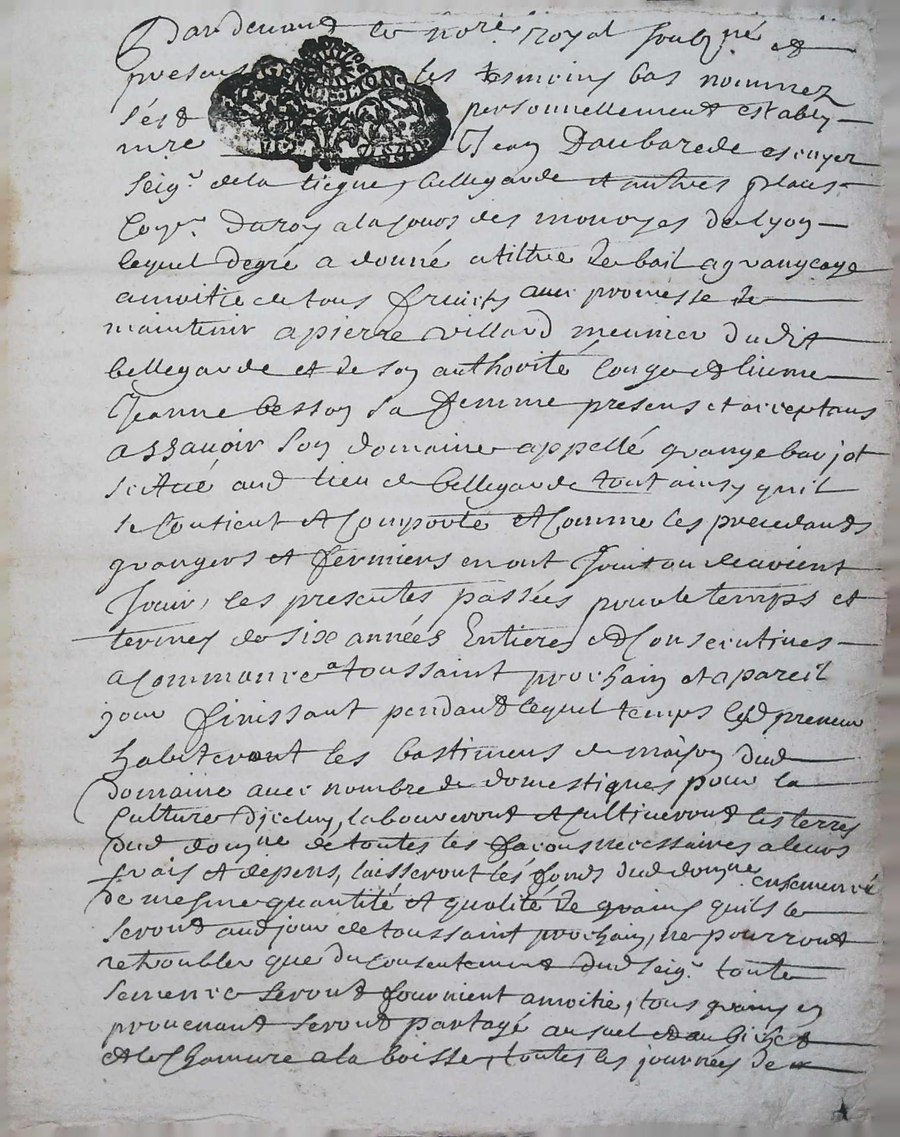 Pardevant le nore. royal soubz.né et
presens les tesmoins bas nommez
s'est personnellement estably
mre Jean Daubarede escuyer
seigr. de la bellegarde et autres places
Consr. du roy a la cour des monoyes de Lyon
lequel de gré a donné a tiltre de bail a grangeage
a moitie de tous fruicts avec promesse de
maintenir a pierre villard meunier dudit
bellegarde et de son authorité congé et licence
Jeanne besson sa femme presens et acceptans
assavoir son domaine appellé grange barjot
scitué aud lieu de bellegarde tout ainsy quil
se contient et comporte et comme les precedands
grangers et fermiers en ont jouit ou deuvient
jouir, les presentes passées pour le temps et
termes de six années entieres et consecutives
a commancer a toussaint prochain et a pareil
jour finissant pendant lequel temps lesd preneurs
habiteront les bastimens de maison dud
domaine avec nombre de domestiques pour la
culture d'jceluy, laboureront et cultiveront les terres
dud domne de toutes les façons necessaires a leurs
frais et depens, laisseront les fonds dud domne ensemencé
de mesme quantité et qualité de grains quils le
seront aud jour de toussaint prochain, ne pourront
retroubler que du consentement dud seigr. toute
semence seront fournient a moitie, tous grains en
provenant seront partagé au suel et au bichet
et le chanvre a la boisse, toutes les journées de